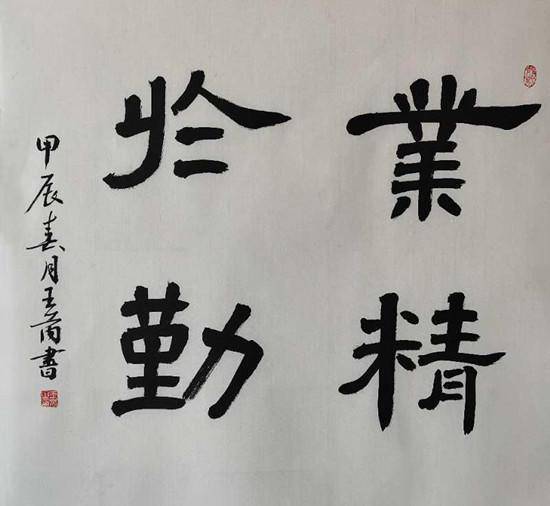 業精
於勤
甲辰春月王苘書